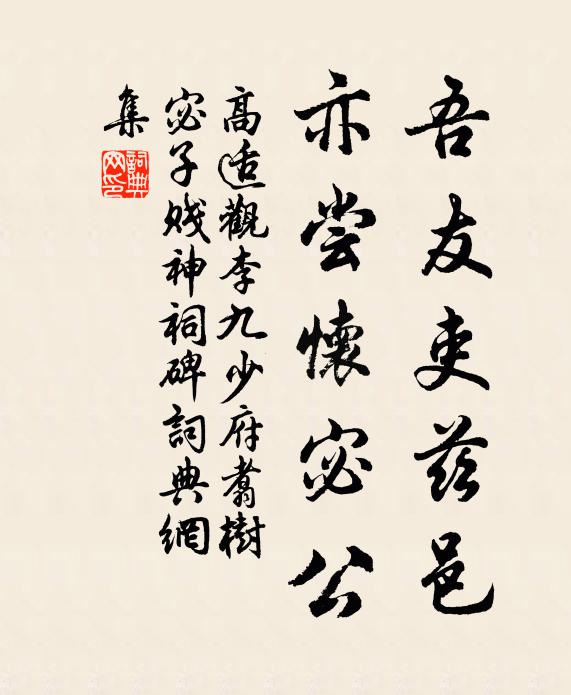 吾友吏茲邑
亦尝懷宓公
高适觀李九少府翥樹
宓子賤神祠碑詞典網
集
詞典
网印